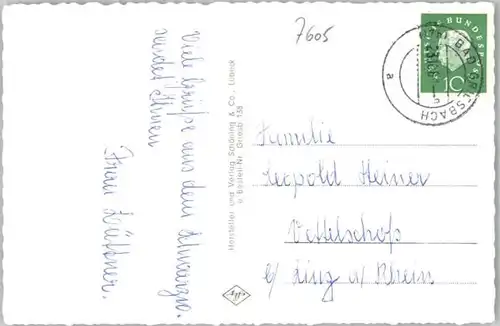 7605
BUNDESPOST
10
BAD GRIESBACH
a
Viele Grüße aus dem Schwarzw.
sendet Ihnen
Frau Küffner.
Hersteller und Verlag Schöning & Co., Lübeck
u Bestell-Nr. Griesb 138
Familie
Leopold Heiner
Vettelschoß
b/ Linz a/ Rhein